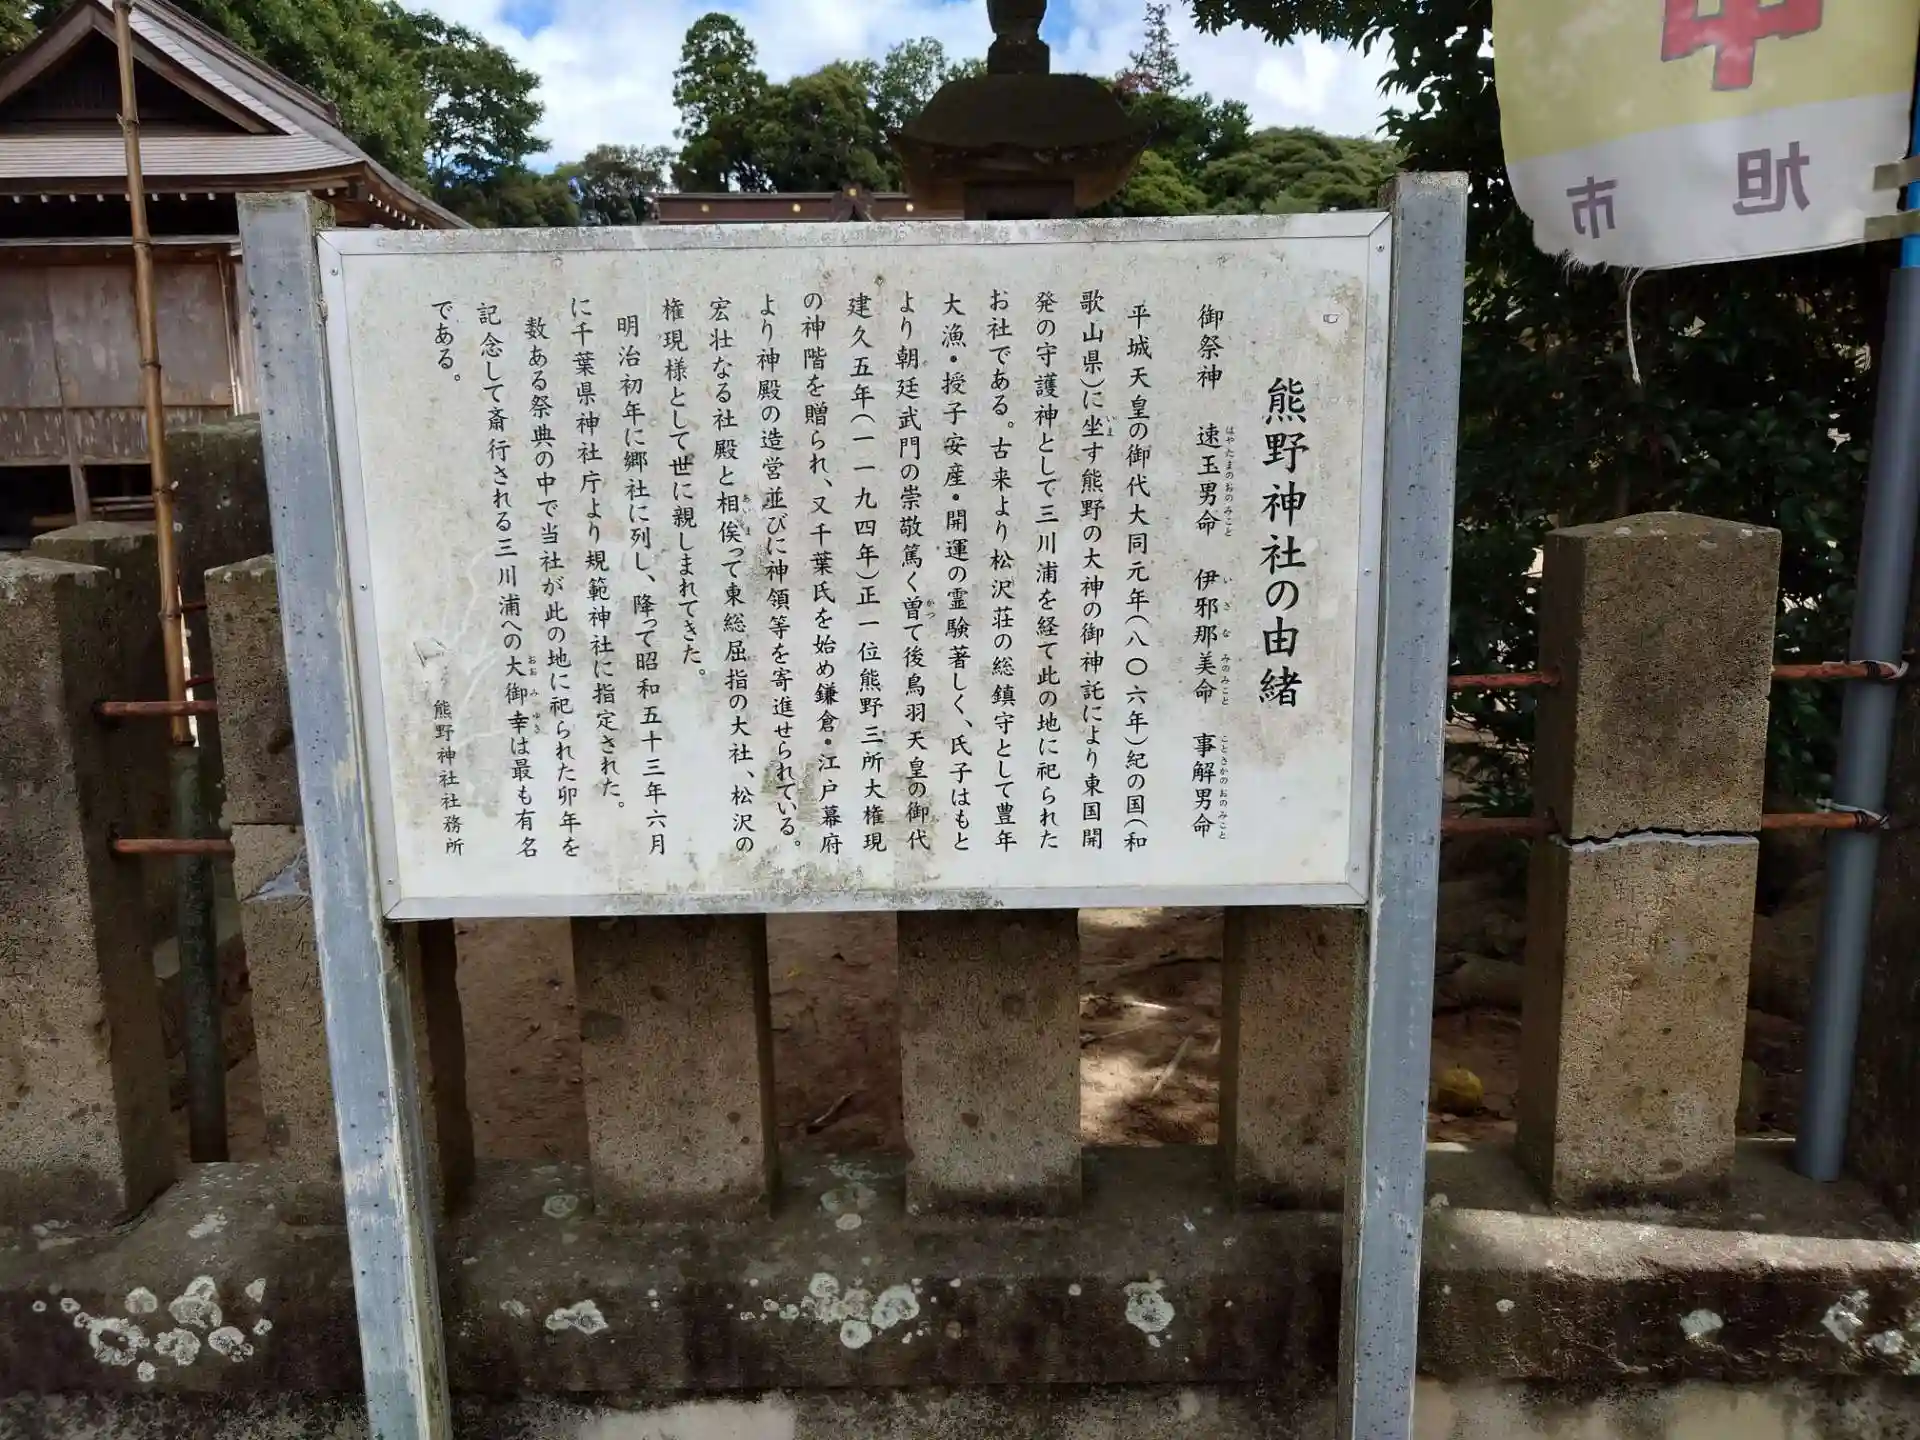 熊野神社の由緒
御祭神 速玉男命 伊邪那美命 事解男命
はやたまのおのみこと いざなみのみこと ことさかのおのみこと
平城天皇の御代大同元年(八〇六年)紀の国(和
歌山県)に坐す熊野の大神の御神託により東国開
いま
発の守護神として三川浦を経て此の地に祀られた
お社である。古来より松沢荘の総鎮守として豊年
大漁・授子安産・開運の霊験著しく、氏子はもと
より朝廷武門の崇敬篤く曽て後鳥羽天皇の御代
かつ
建久五年(一一九四年)正一位熊野三所大権現
の神階を贈られ、又千葉氏を始め鎌倉・江戸幕府
より神殿の造営並びに神領等を寄進せられている。
宏壮なる社殿と相俟って東総屈指の大社、松沢の
あいま
権現様として世に親しまれてきた。
明治初年に郷社に列し、降って昭和五十三年六月
に千葉県神社庁より規範神社に指定された。
数ある祭典の中で当社が此の地に祀られた卯年を
記念して斎行される三川浦への大御幸は最も有名
おおみゆき
である。
熊野神社社務所
旭市